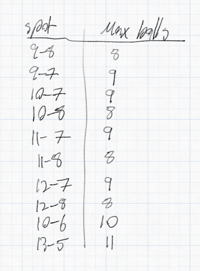 spot Max balls
9-8 8
9-7 9
10-7 9
10-8 8
11-7 9
11-8 8
12-7 9
12-8 8
10-6 10
13-5 11